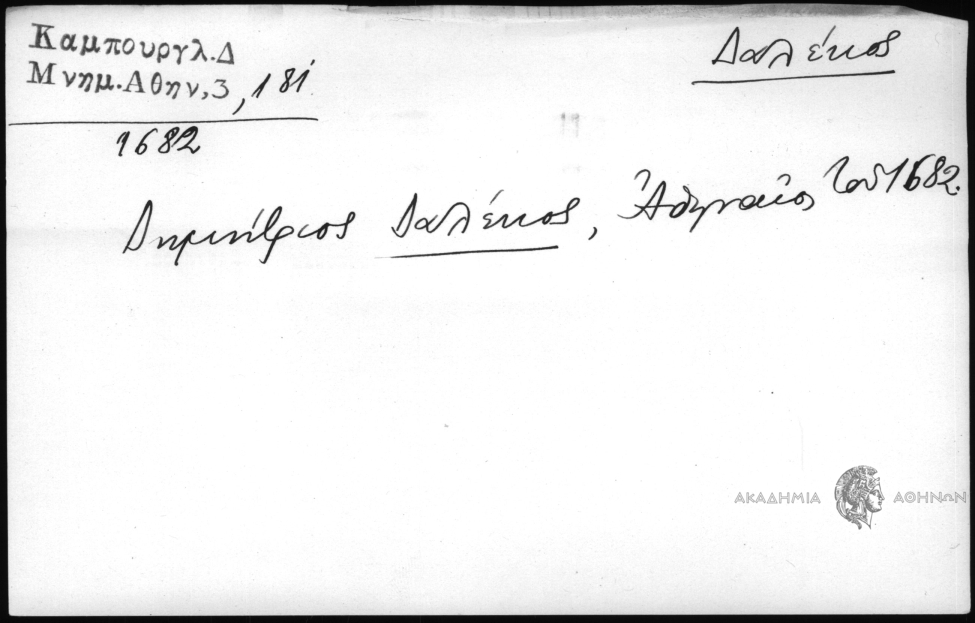 Καμπουργλ.Δ
Μνημ.Αθην,3, 181
1682
Δαλέκος
Δημήτριος Δαλέκος, Ἀθηναῖος τοῦ 1682.
ΑΚΑΔΗΜΙΑ ΑΘΗΝΩΝ